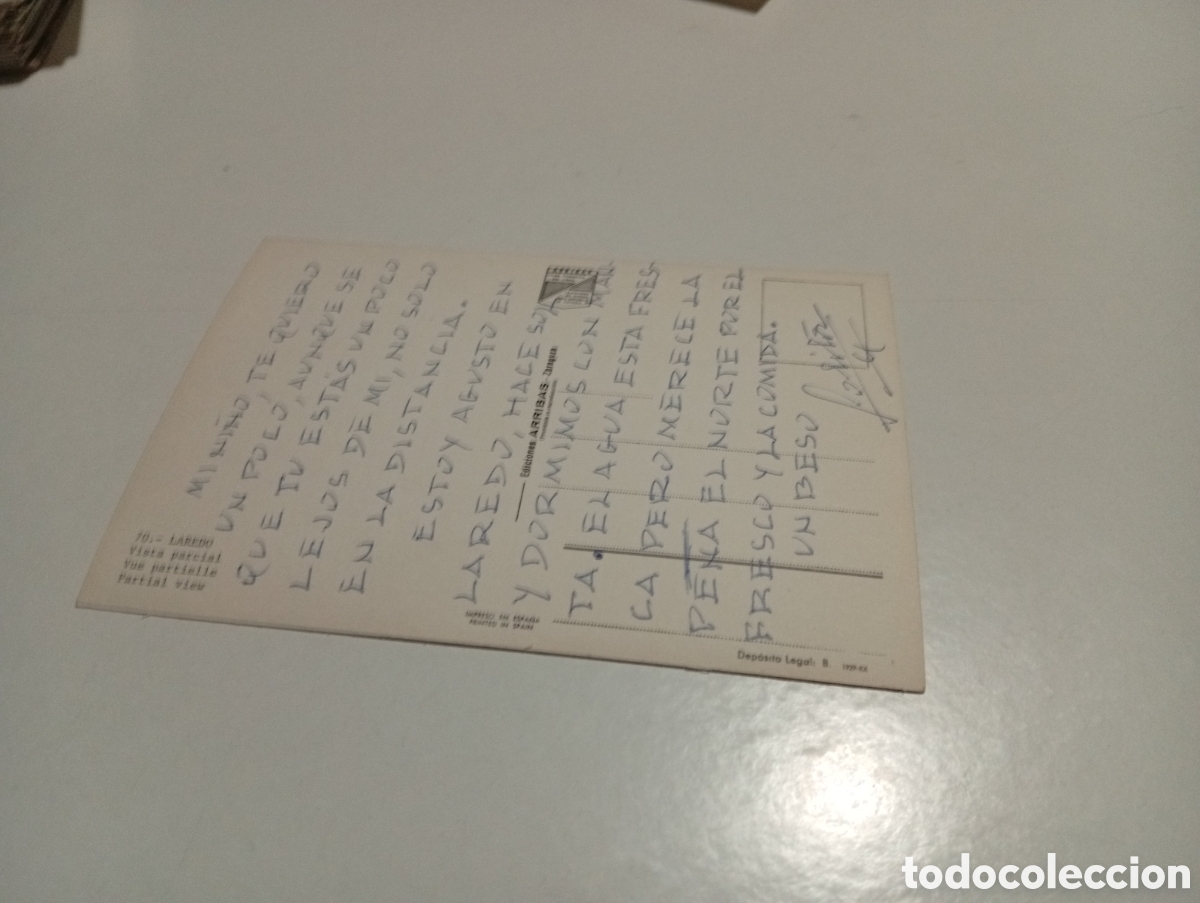 70.- LAREDO
Vista parcial
Vue partielle
Partial view
MI NIÑO, TE QUIERO
UN POCO, AUNQUE SE
QUE TU ESTÁS UN POCO
LEJOS DE MI, NO SOLO
EN LA DISTANCIA.
ESTOY AGUSTO EN
LAREDO, HACE SOL
Y DORMIMOS CON MAN-
TA. EL AGUA ESTA FRES-
CA PERO MERECE LA
PENA EL NORTE POR EL
FRESCO Y LA COMIDA.
UN BESO
IMPRESO EN ESPAÑA
PRINTED IN SPAIN
Ediciones ARRIBAS - Zaragoza
ARRIBAS
Depósito Legal: B.
todocoleccion